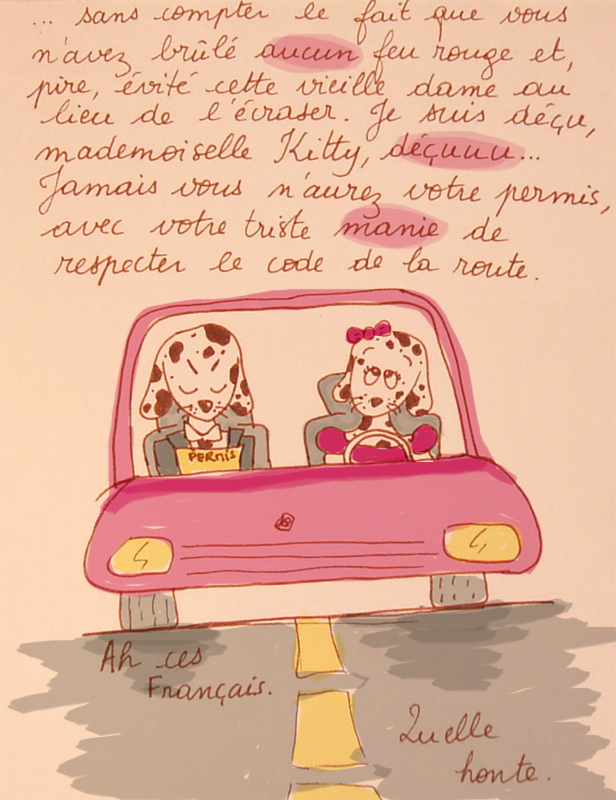 ... sans compter le fait que vous
n'avez brûlé aucun feu rouge et,
pire, évité cette vieille dame au
lieu de l'écraser. Je suis déçu,
mademoiselle Kitty, déçuuu...
Jamais vous n'aurez votre permis,
avec votre triste manie de
respecter le code de la route.
PERMIS
Ah ces
Français.
Quelle
honte.